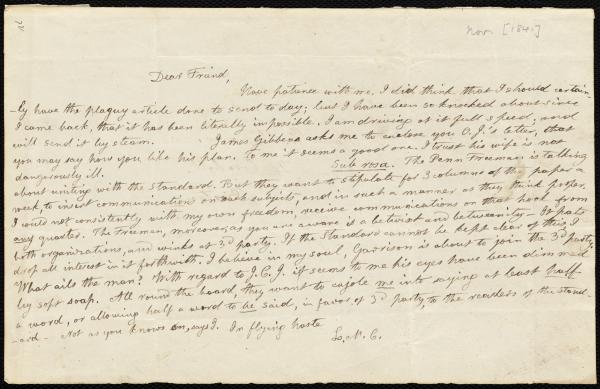 Nov. [1841]
Dear Friend,
Have patience with me. I did think that I should certain
-ly have the plaguy article done to send to day; but I have been so knocked about since
I came back, that it has been literally impossible. I am driving at it full speed; and
will send it by steam. James Gibbons asks me to enclose you O. J.'s letter, that
you may say how you like his plan. To me it seems a good one. I trust his wife is not
dangerously ill.
Sub rosa. The Penn Freeman is talking
about uniting with the Standard. But they want to stipulate for 3 columns of the paper a
week, to insert communications on such subjects, and in such a manner as they think proper.
I could not consistently with my own freedom, receive communications on that hook, from
any quarter. The Freeman, moreover, as you are aware is a betwixt and betweenity – It pats
both organizations, and winks at 3d party. If the Standard cannot be kept clear of this, I
drop all interest in it forthwith. I believe in my soul, Garrison is about to join the 3d party.
What ails the man? With regard to J. C. J. it seems to me his eyes have been dimmed
by soft soap. All round the board, they want to cajole me into saying at least half
a word, or allowing half a word to be said, in favor of 3d party, to the readers of the Stand-
-ard – Not as you knows on, says I. In flying haste
L. M. C.